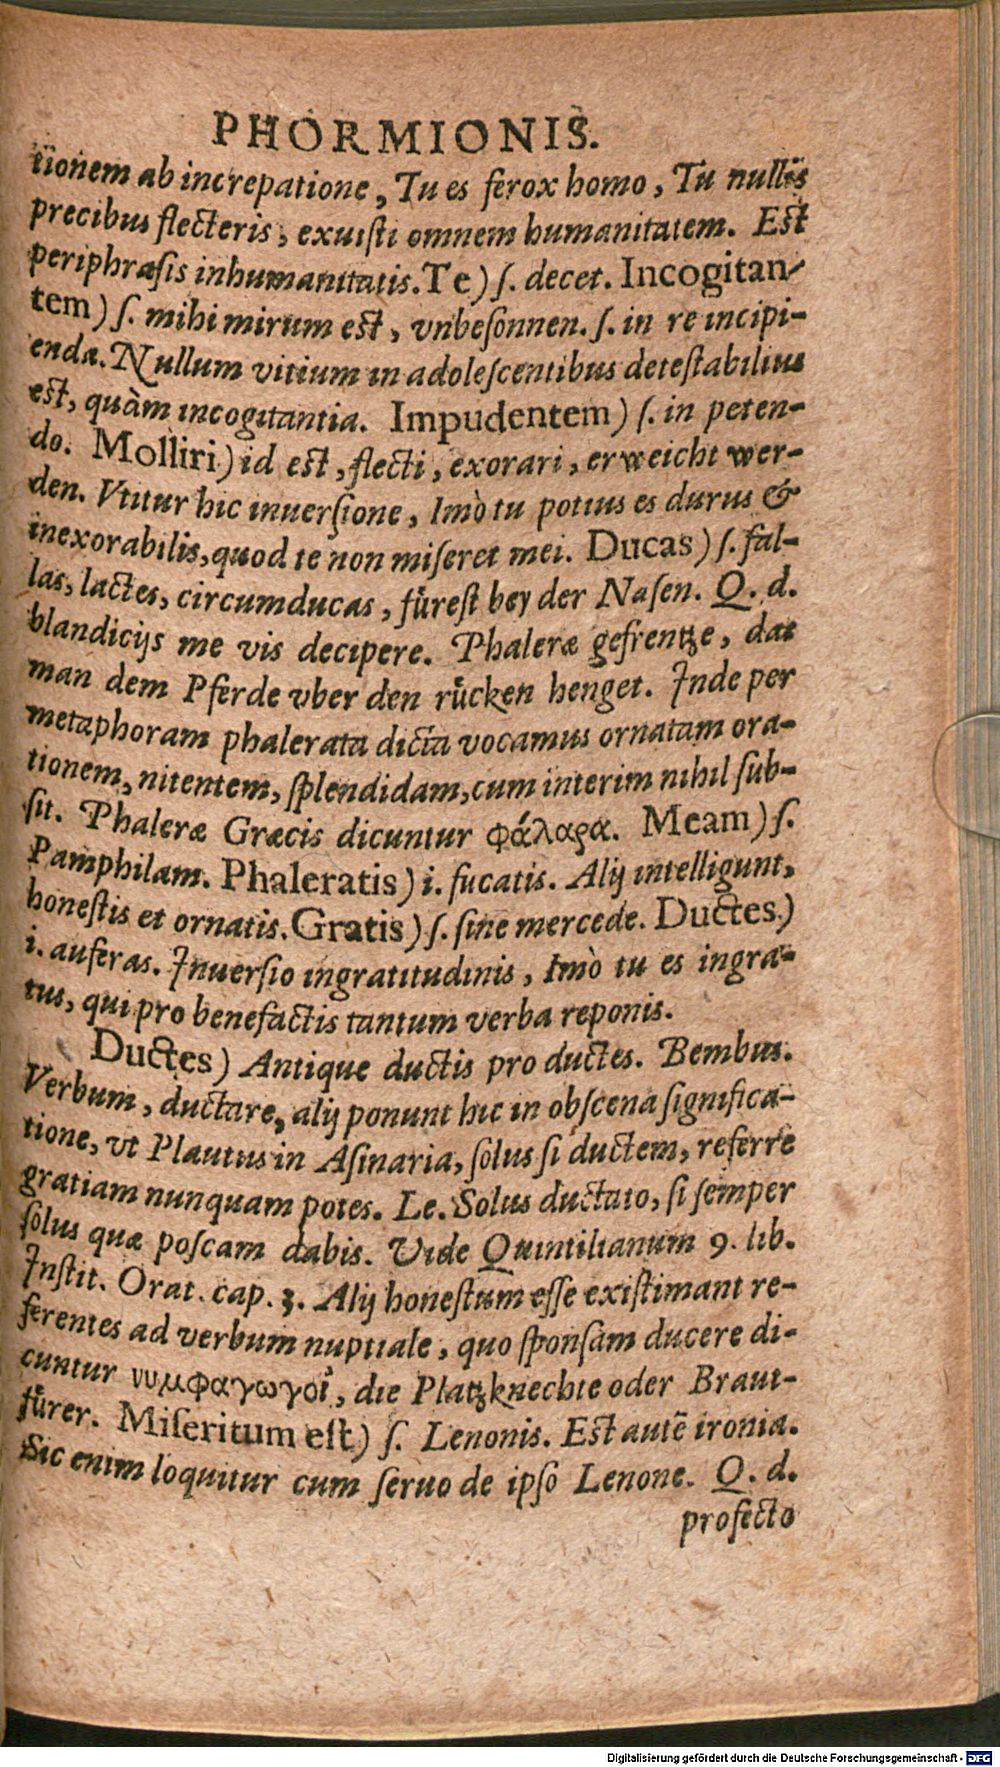 PHORMIONIS.
tionem ab increpatione, Tu es ferox homo, Tu nullis
precibus flecteris, exuisti omnem humanitatem. Est
periphrasis inhumanitatis. Te) ſ. decet. Incogitan-
tem) ſ. mihi mirum est, vnbeſonnen. ſ. in re incipi-
endæ. Nullum vitium in adoleſcentibus deteſtabilius
est, quàm incogitantia. Impudentem) ſ. in peten-
do. Molliri) id est, flecti, exorari, erweicht wer-
den. Vtitur hic inuerſione, Imò tu potius es durus &
inexorabilis, quod te non miſeret mei. Ducas) ſ. fal-
las, lactes, circumducas, fu̔reſt bey der Naſen. Q. d.
blandicijs me vis decipere. Phaleræ gefrentze, das
man dem Pferde vber den ru̔cken henget. Inde per
metaphoram phalerata dicta vocamus ornatam ora-
tionem, nitentem, ſplendidam, cum interim nihil ſub-
ſit. Phaleræ Græcis dicuntur φάλαρα. Meam) ſ.
Pamphilam. Phaleratis) i. fucatis. Alij intelligunt,
honeſtis et ornatis. Gratis) ſ. ſine mercede. Ductes)
i. auferas. Inuerſio ingratitudinis, Imò tu es ingra-
tus, qui pro benefactis tantum verba reponis.
Ductes) Antique ductis pro ductes. Bembus.
Verbum, ductare, alij ponunt hic in obſcena ſignifica-
tione, vt Plautus in Aſinaria, ſolus ſi ductem, referre
gratiam nunquam potes. Le. Solus ductato, ſi ſemper
ſolus quæ poſcam dabis. Vide Quintilianum 9. lib.
Inſtit. Orat. cap. 3. Alij honeſtum eſſe exiſtimant re-
ferentes ad verbum nuptiale, quo ſponſam ducere di-
cuntur νυμφαγωγοὶ, die Platzknechte oder Braut-
fu̔rer. Miſeritum eſt) ſ. Lenonis. Est autē ironia.
Sic enim loquitur cum ſeruo de ipſo Lenone. Q. d.
profecto
Digitalisierung gefördert durch die Deutsche Forschungsgemeinschaft - DFG